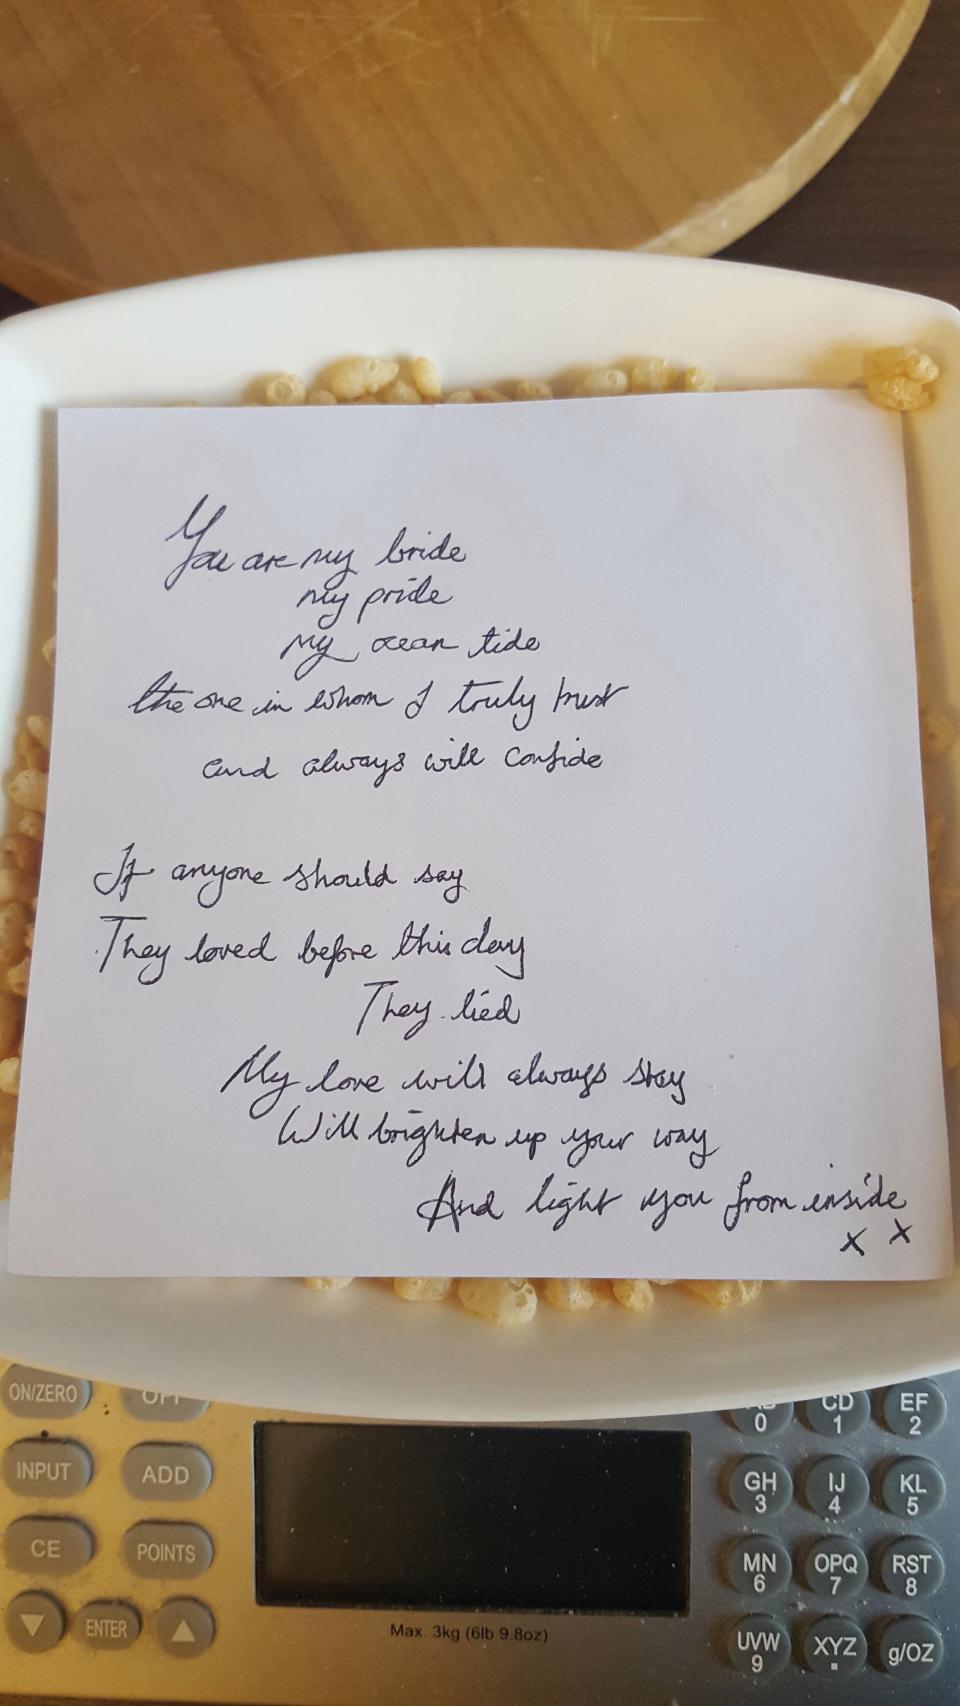 You are my bride
my pride
My ocean tide
the one in whom I truly trust
and always will confide
If anyone should say
They loved before this day
They lied
My love will always stay
Will brighten up your way
And light you from inside
x x
ON/ZERO
INPUT
ADD
CE
POINTS
ENTER
Max. 3kg (6lb 9.8oz)
0
CD
1
EF
2
GH
3
IJ
4
KL
5
MN
6
OPQ
7
RST
8
UVW
9
XYZ
.
g/OZ